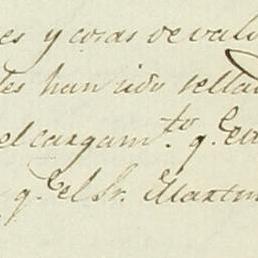 es y cosas de valo
les han sido sella
el cargam.to q.e co
q.e el Sr. Martin